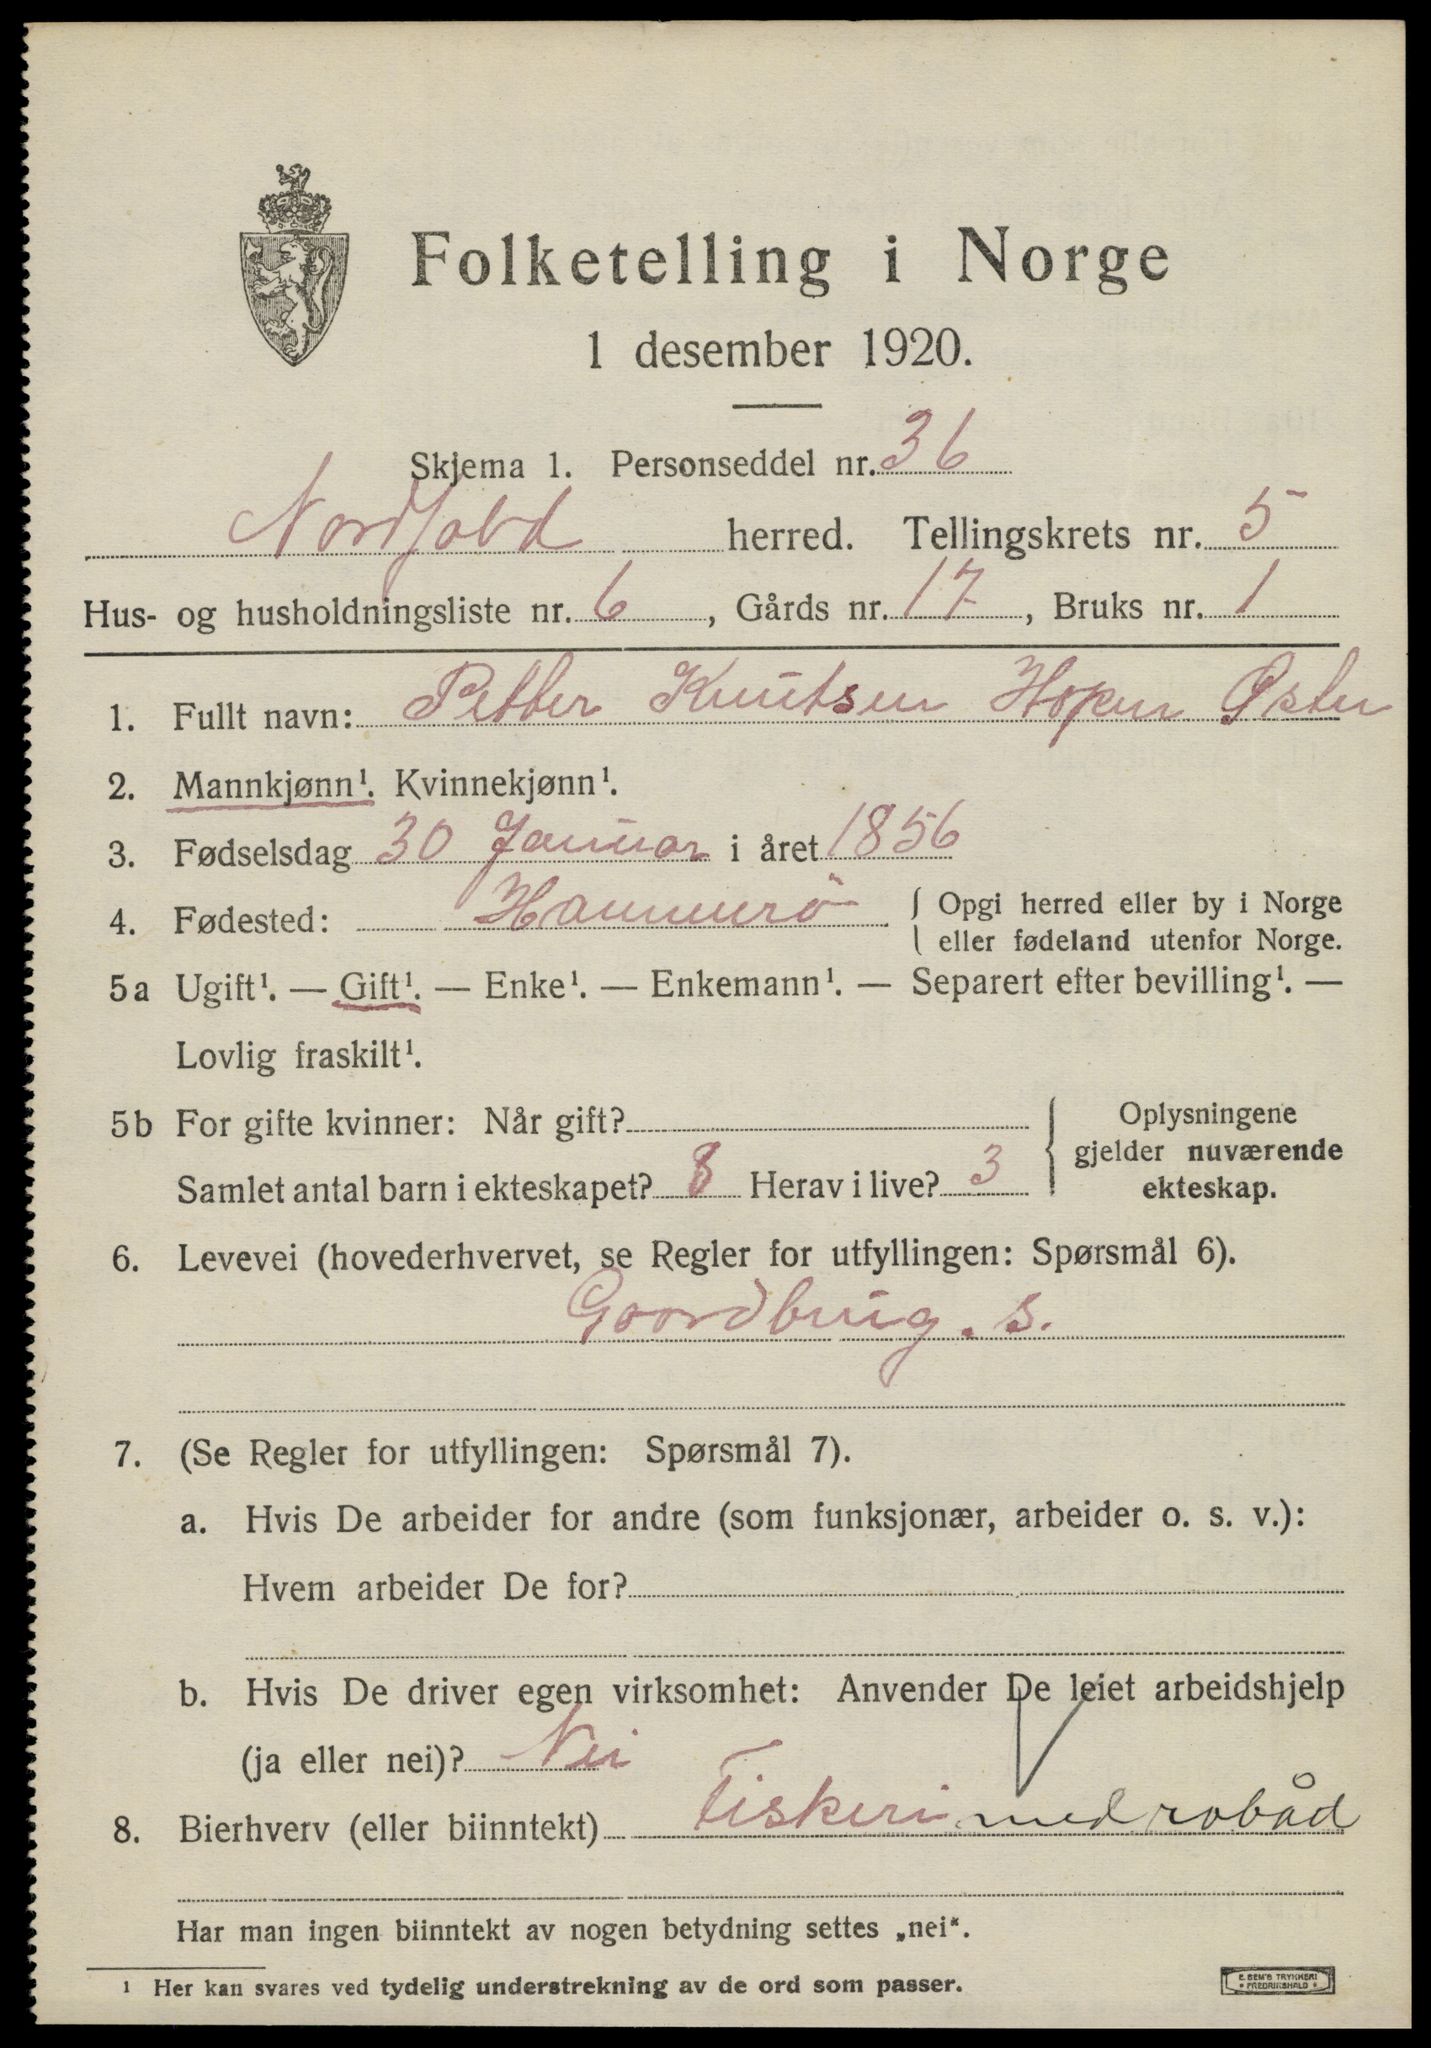 Folketelling i Norge
1 desember 1920.
Skjema 1. Personseddel nr. 36
Nordfold herred. Tellingskrets nr. 5
Hus- og husholdningsliste nr. 6, Gårds nr. 17, Bruks nr. 1
1. Fullt navn: Petter Knutsen Hopen Øster
2. Mannkjønn¹. Kvinnekjønn¹.
3. Fødselsdag 30 Januar i året 1856
4. Fødested: Hammerö { Opgi herred eller by i Norge
eller fødeland utenfor Norge.
5a Ugift¹. — Gift¹. — Enke¹. — Enkemann¹. — Separert efter bevilling¹. —
Lovlig fraskilt¹.
5b For gifte kvinner: Når gift?
Samlet antal barn i ekteskapet? 8 Herav i live? 3
{ Oplysningene
gjelder nuværende
ekteskap.
6. Levevei (hovederhvervet, se Regler for utfyllingen: Spørsmål 6).
Goordbrug. s.
7. (Se Regler for utfyllingen: Spørsmål 7).
a. Hvis De arbeider for andre (som funksjonær, arbeider o. s. v.):
Hvem arbeider De for?
b. Hvis De driver egen virksomhet: Anvender De leiet arbeidshjelp
(ja eller nei)? Nei
8. Bierhverv (eller biinntekt) Fiskeri med robåd
Har man ingen biinntekt av nogen betydning settes „nei“.
¹ Her kan svares ved tydelig understrekning av de ord som passer.
E. SEM'S TRYKKERI
* FREDRIKSHALD *